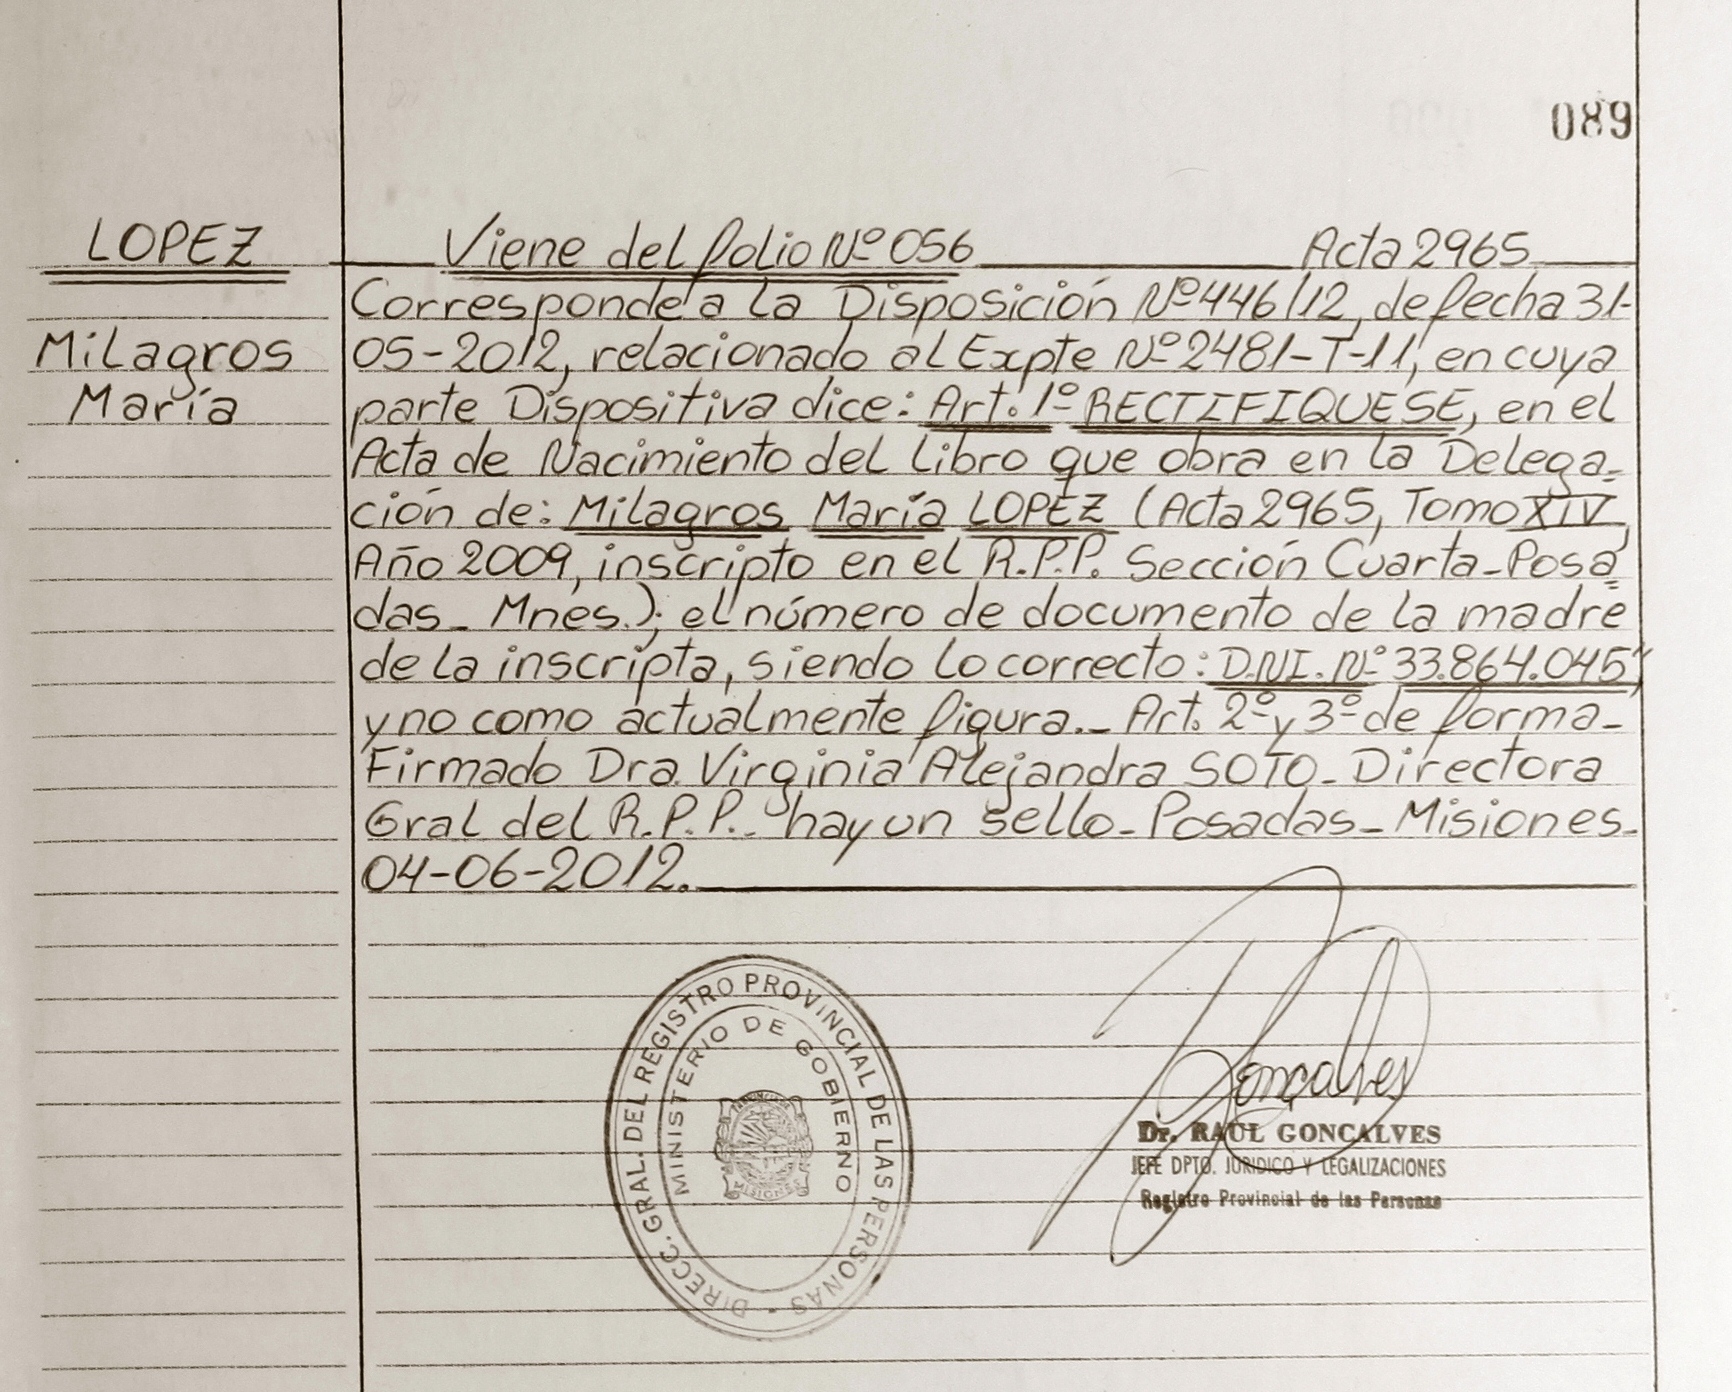 089
LOPEZ
Milagros
María
Viene del folio Nº 056 Acta 2965
Corresponde a la Disposición Nº 446/12, de fecha 31-
05-2012, relacionado al Expte Nº 2481-T-11, en cuya
parte Dispositiva dice: Art. 1º RECTIFIQUESE, en el
Acta de Nacimiento del Libro que obra en la Delega-
ción de: Milagros María LOPEZ (Acta 2965, Tomo XIV,
Año 2009, inscripto en el R.P.P. Sección Cuarta-Posa
das_ Mnes.); el número de documento de la madre
de la inscripta, siendo lo correcto: D.N.I. Nº 33.864.045",
y no como actualmente figura._ Art. 2º y 3º de forma_
Firmado Dra. Virginia Alejandra SOTO_ Directora
Gral del R.P.P._ hay un sello_ Posadas_ Misiones_
04-06-2012.
DIRECC. GRAL. DEL REGISTRO PROVINCIAL DE LAS PERSONAS -
MINISTERIO DE GOBIERNO
MISIONES
Gonçalves
Dr. RAUL GONCALVES
JEFE DPTO. JURIDICO Y LEGALIZACIONES
Registro Provincial de las Personas